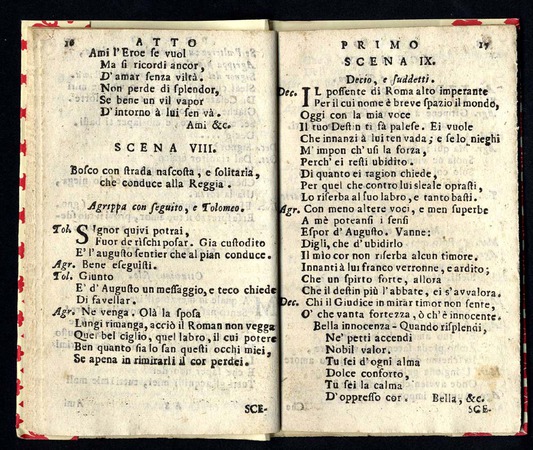 16 ATTO
Ami l'Eroe se vuol
Ma si ricordi ancor,
D'amar senza viltà.
Non perde di splendor,
Se bene un vil vapor
D'intorno à lui sen và.
Ami &c.
SCENA VIII.
Bosco con strada nascosta, e solitaria,
che conduce alla Reggia.
Agrippa con seguito, e Tolomeo.
Tol. Signor quivi potrai,
Fuor de rischi posar. Gia custodito
E' l'augusto sentier che al pian conduce.
Agr. Bene eseguisti.
Tol. Giunto
E' d'Augusto un messaggio, e teco chiede
Di favellar.
Agr. Ne venga. Olà la sposa
Lungi rimanga, acciò il Roman non vegga
Quel bel ciglio, quel labro, il cui potere
Ben quanto sia lo san questi occhi miei,
Se apena in rimirarli il cor perdei.
SCE-
PRIMO 17
SCENA IX.
Decio, e suddetti.
Dec. IL possente di Roma alto imperante
Per il cui nome è breve spazio il mondo,
Oggi con la mia voce
Il tuo Destin ti fà palese. Ei vuole
Che innanzi à lui ten vada; e se lo nieghi
M' impon ch'usi la forza,
Perch' ei resti ubidito.
Di quanto ei ragion chiede,
Per quel che contro lui sleale oprasti,
Lo riserba al suo labro, e tanto basti.
Agr. Con meno altere voci, e men superbe
A mè poteansi i sensi
Espor d'Augusto. Vanne:
Digli, che d'ubidirlo
Il mio cor non riserba alcun timore.
Innanti à lui franco verronne, e ardito;
Che un spirto forte, allora
Che il destin più l'abbate, ei s'avvalora.
Dec. Chi il Giudice in mirar timor non sente,
O' che vanta fortezza, ò ch'è innocente.
Bella innocenza - Quando risplendi,
Ne' petti accendi
Nobil valor.
Tu sei d'ogni alma
Dolce conforto,
Tu sei la calma
D'oppresso cor. Bella, &c.
SCE-